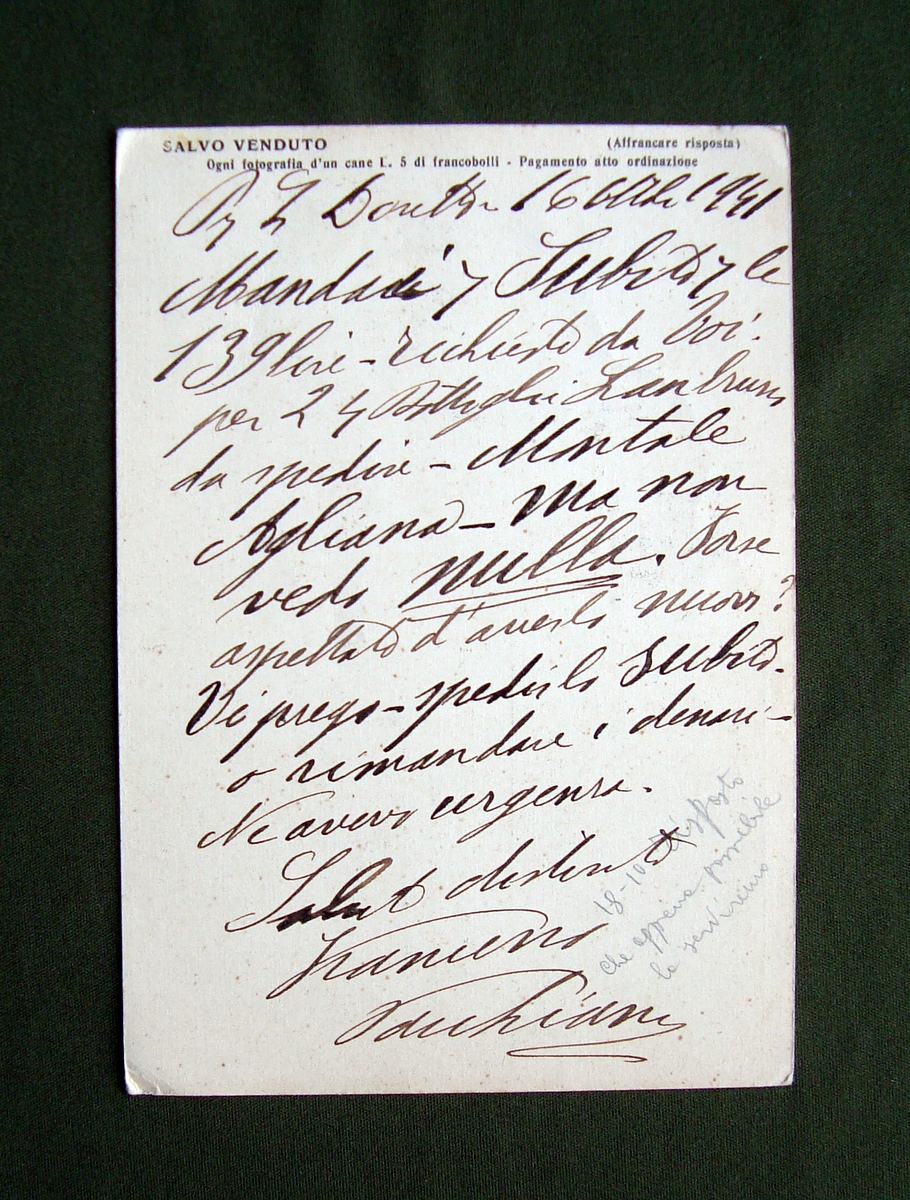 SALVO VENDUTO (Affrancare risposta)
Ogni fotografia d'un cane L. 5 di francobolli - Pagamento atto ordinazione
16 1941
Mandai Subito le
139 lire - richiesto da Voi.
per 24 Bottiglie Lambrusco
da spedire - Montale
Agliana - Ma non
vedo nulla. Forse
aspettato d'averlo nuovo?
Vi prego - spedirlo subito.
o rimandare i denari -
Ne avevo urgenza.
Saluti distinti
Francesco
18-10- risposto
che appena possibile
lo serviremo